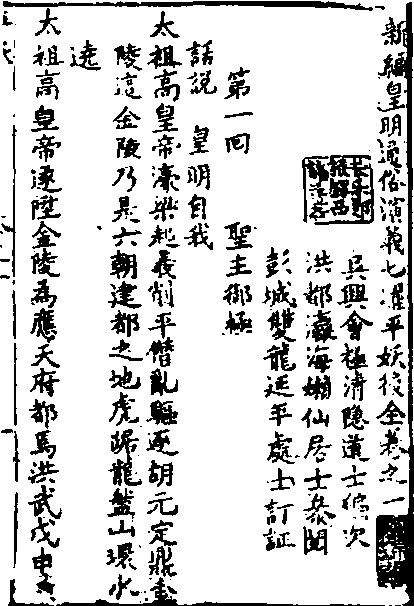 新鐫皇明通俗演義七曜平妖後全卷之一
吳興會極清隱道士編次
洪都瀛海嬾仙居士參閱
彭城雙龍延平處士訂証
第一回 聖主御極
話說 皇明自我
太祖高皇帝濠梁起義削平僭亂驅逐胡元定鼎金
陵這金陵乃是六朝建都之地虎踞龍盤山環水
遶
太祖高皇帝遂陞金陵為應天府都焉洪武戊申